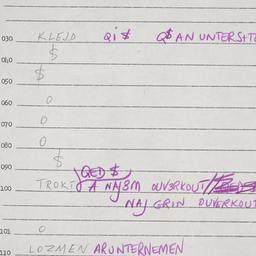 030 KLEJD Qi $ Q$ AN UNTERSHTE
040 $
050 $
060 0
070 0
080 0
090 $ QED $
100 TROKT A NAJBM OUVERKOUT
NAJ GRIN OUVERKOUT
101 0
110 LOZMEN ARUNTERNEMEN